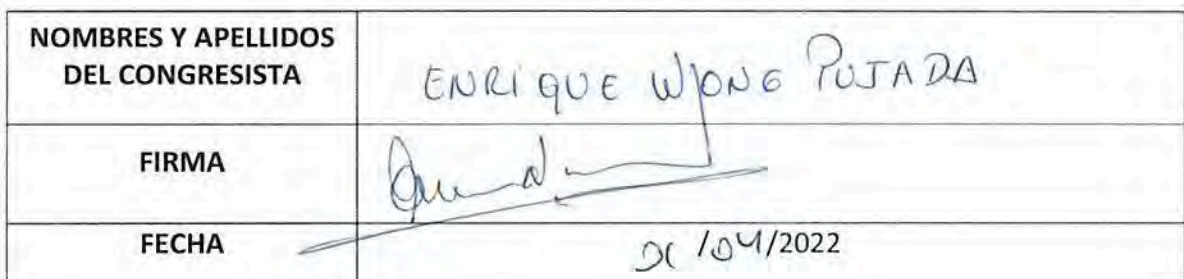 NOMBRES Y APELLIDOS
DEL CONGRESISTA
ENRIQUE WONG PUJADA
FIRMA
FECHA
/04/2022